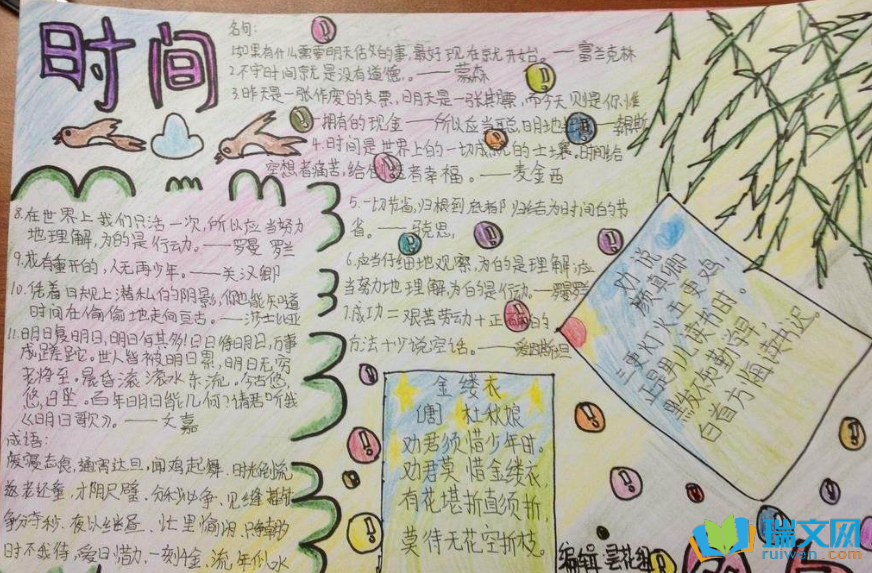 时间
名句:
1.如果有什么需要明天做的事,最好现在就开始。——富兰克林
2.不守时间就是没有道德。——蒙森
3.昨天是一张作废的支票,明天是一张期票,而今天则是你惟
一拥有的现金——所以应当聪明地
4.时间是世界上的一切成就的土壤。时间给
空想者痛苦,给创造者幸福。——麦金西
5.一切节省,归根到底都归结为时间的节
省。——马克思
6.应当仔细地观察,为的是理解;应
当努力地理解,为的是行动。——罗曼罗兰
7.成功二艰苦劳动十正确的
方法十少说空话。——爱因斯坦
8.在世界上我们只活一次,所以应当努力
地理解,为的是行动。——罗曼 罗兰
9.花有重开的,人无再少年。——关汉卿
10.凭着日规上潜私的阴影,你也能知道
时间在偷偷地走向亘古。——莎士比亚
11.明日复明日,明日何其多!日日待明日,万事
成蹉跎。世人皆被明日累,明日无穷
老将至。晨昏滚滚水东流,今古悠
悠日坠。百年明日能几何?请君听我
《明日歌》。——文嘉
成语:
废寝忘食、通宵达旦、闻鸡起舞、时光倒流
返老还童、寸阴尺璧、分秒必争、见缝插针
争分夺秒、夜以继昼、忙里偷闲、
时不我待、爱日惜力、一刻千金、流年似水
劝说
颜真卿
三更灯火五更鸡,
正是男儿读书时。
黑发不知勤学早,
白首方悔读书迟。
金缕衣
[唐] 杜秋娘
劝君须惜少年时。
劝君莫惜金缕衣,
有花堪折直须折,
莫待无花空折枝。
编辑:
瑞文网
ruiwen.com